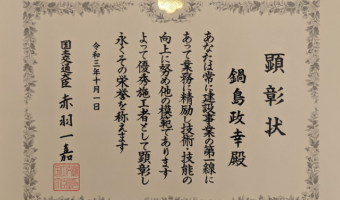 顕彰状
鍋島政幸殿
あなたは常に建設事業の第一線に
あって業務に精励し技術・技能の
向上に努め他の模範であります
よって優秀施工者として顕彰し
永くその栄誉を称えます
令和三年十月一日
国土交通大臣 赤羽一嘉